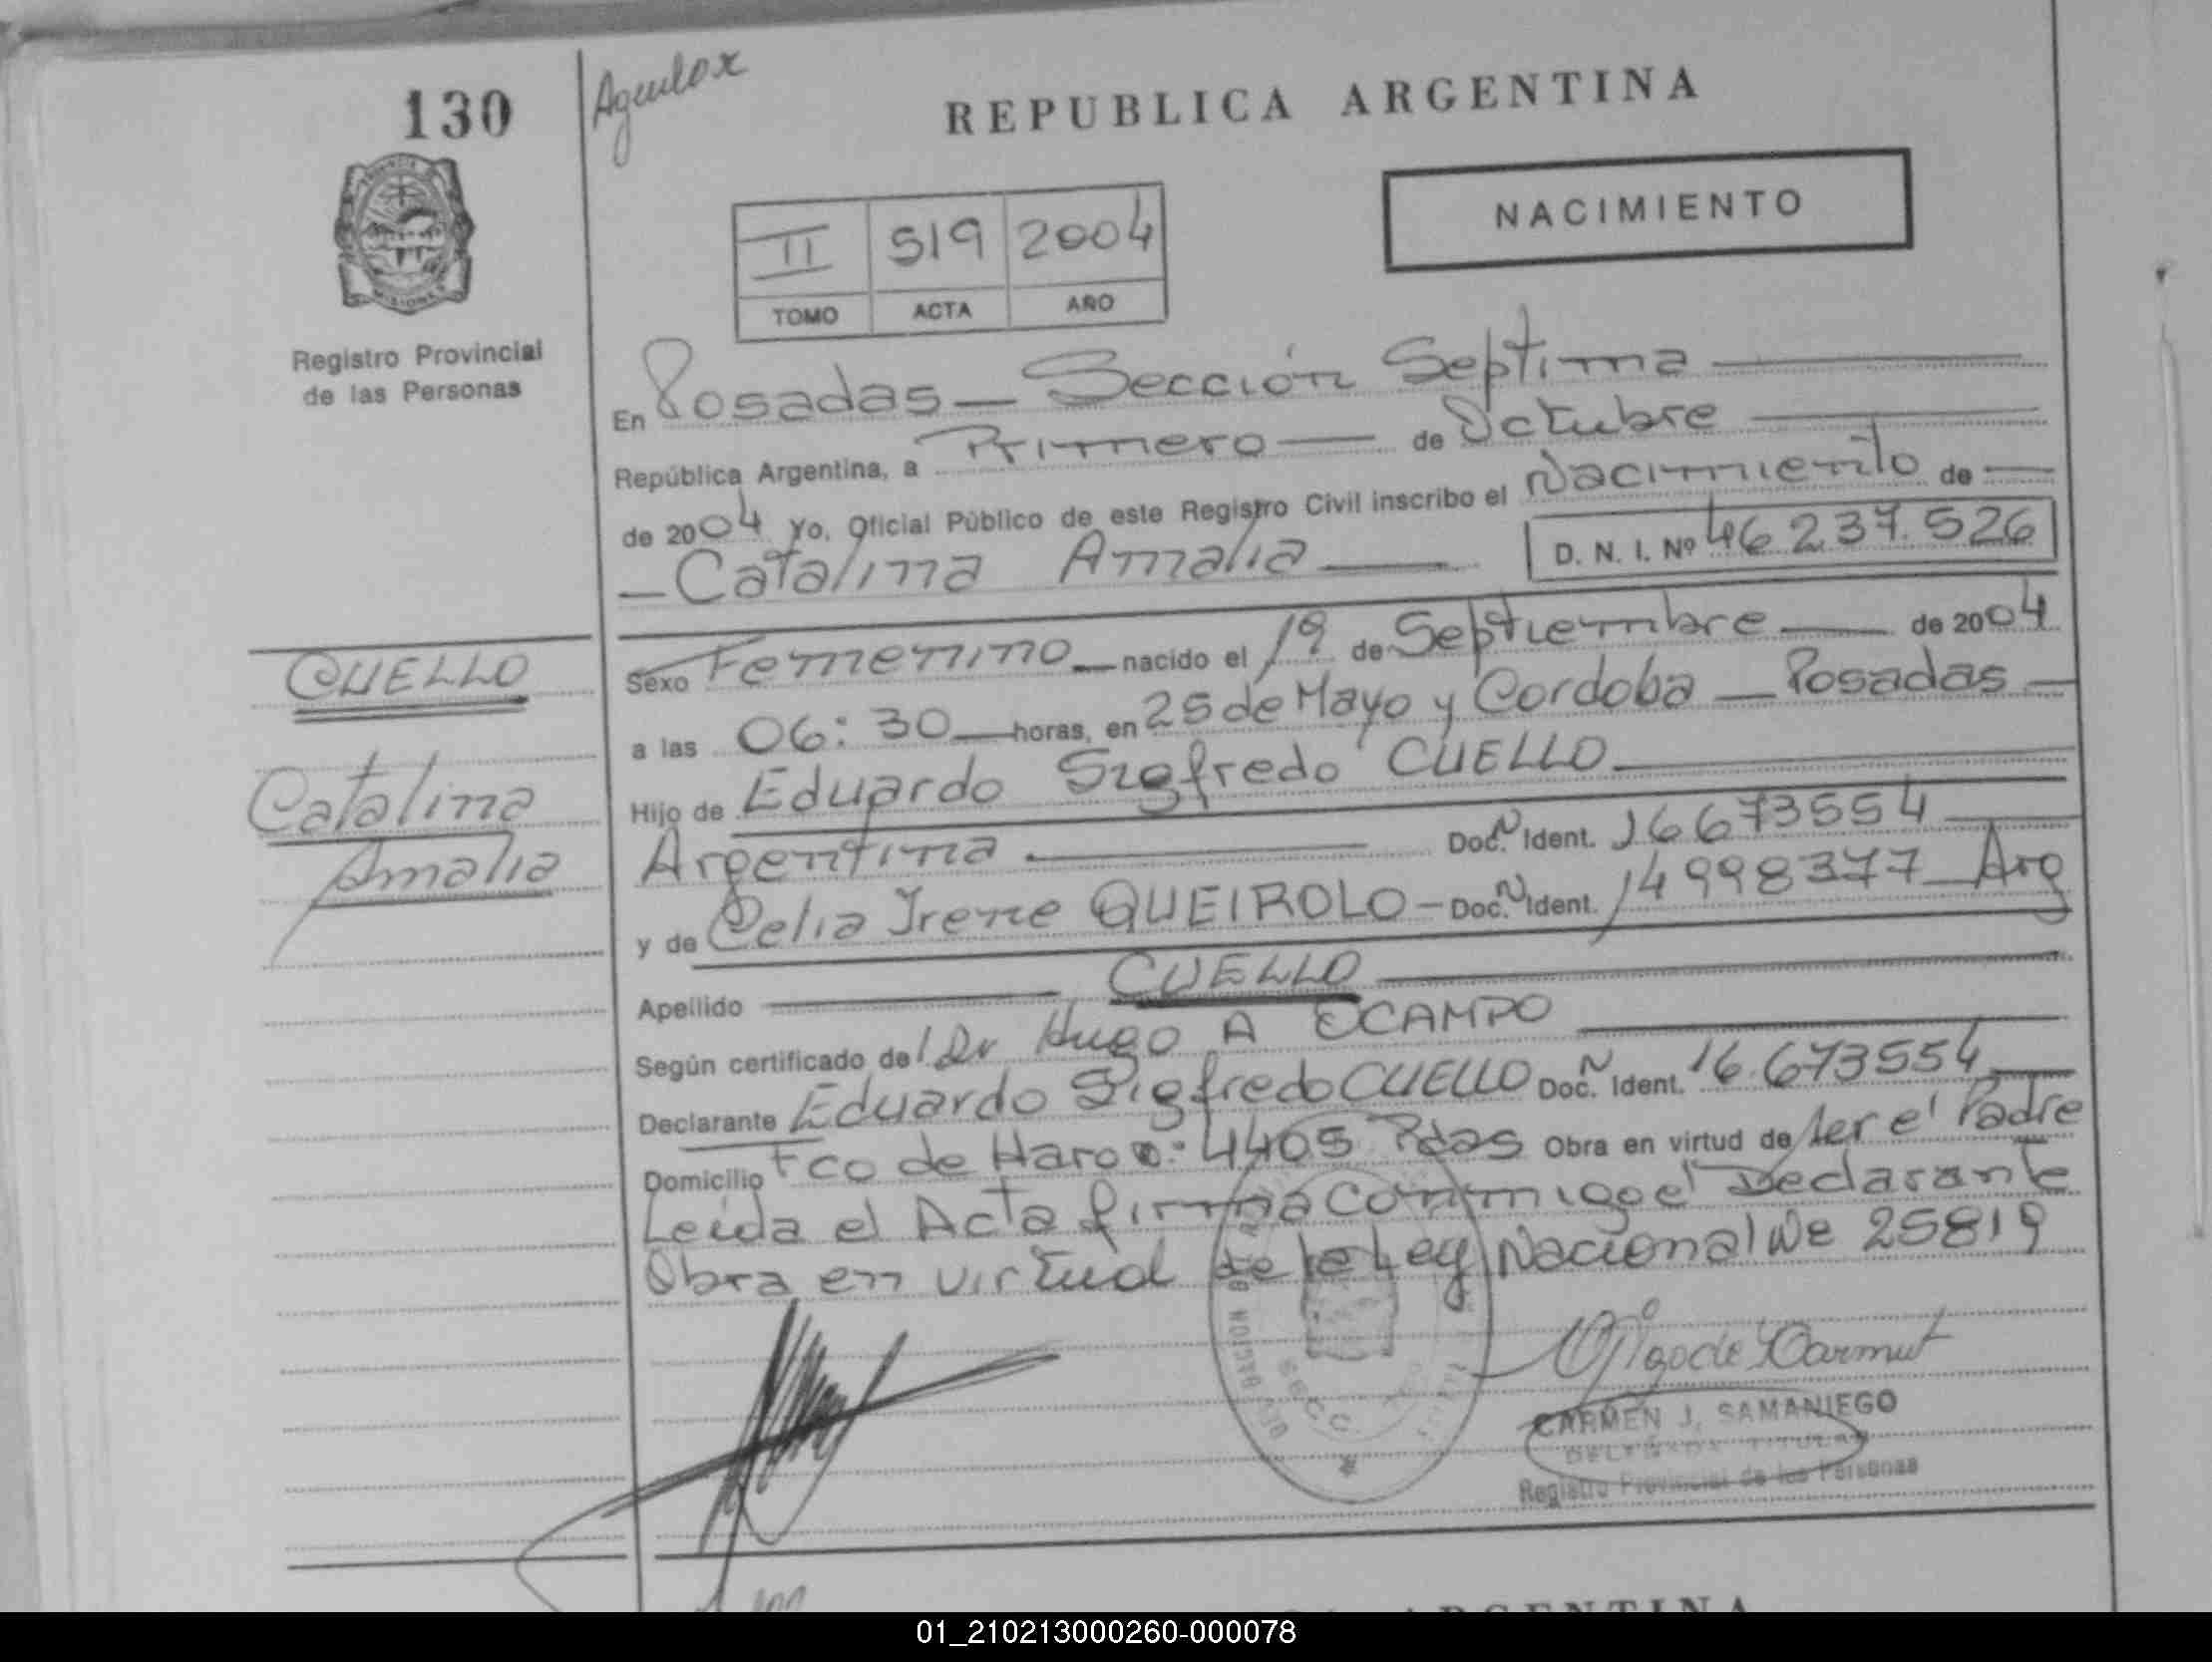 130
Aguilar
REPUBLICA ARGENTINA
NACIMIENTO
II 519 2004
TOMO ACTA AÑO
MISIONES
Registro Provincial
de las Personas
En Posadas - Sección Septima
República Argentina, a Primero de Octubre
de 2004 Yo, Oficial Público de este Registro Civil inscribo el Nacimiento de
Catalina Amalia D. N. I. Nº 46.237.526
CUELLO
Catalina
Amalia
Sexo Femenino nacido el 19 de Septiembre de 2004
a las 06:30 horas, en 25 de Mayo y Cordoba - Posadas
Hijo de Eduardo Sigfredo CUELLO
Argentina Doc. N Ident. 16673554
y de Celia Irene QUEIROLO - Doc. N Ident. 14998377 Arg
Apellido CUELLO
Según certificado del Dr Hugo A OCAMPO
Declarante Eduardo Sigfredo CUELLO Doc. N Ident. 16.673554
Domicilio Fco de Haro 4405 Pdas Obra en virtud de ser el Padre
Leida el Acta firma conmigo el Declarante
Obra en virtud de la Ley Nacional Nº 25819
CARMEN J. SAMANIEGO
DELEGADA TITULAR
Registro Provincial de las Personas
ARGENTINA
01_210213000260-000078